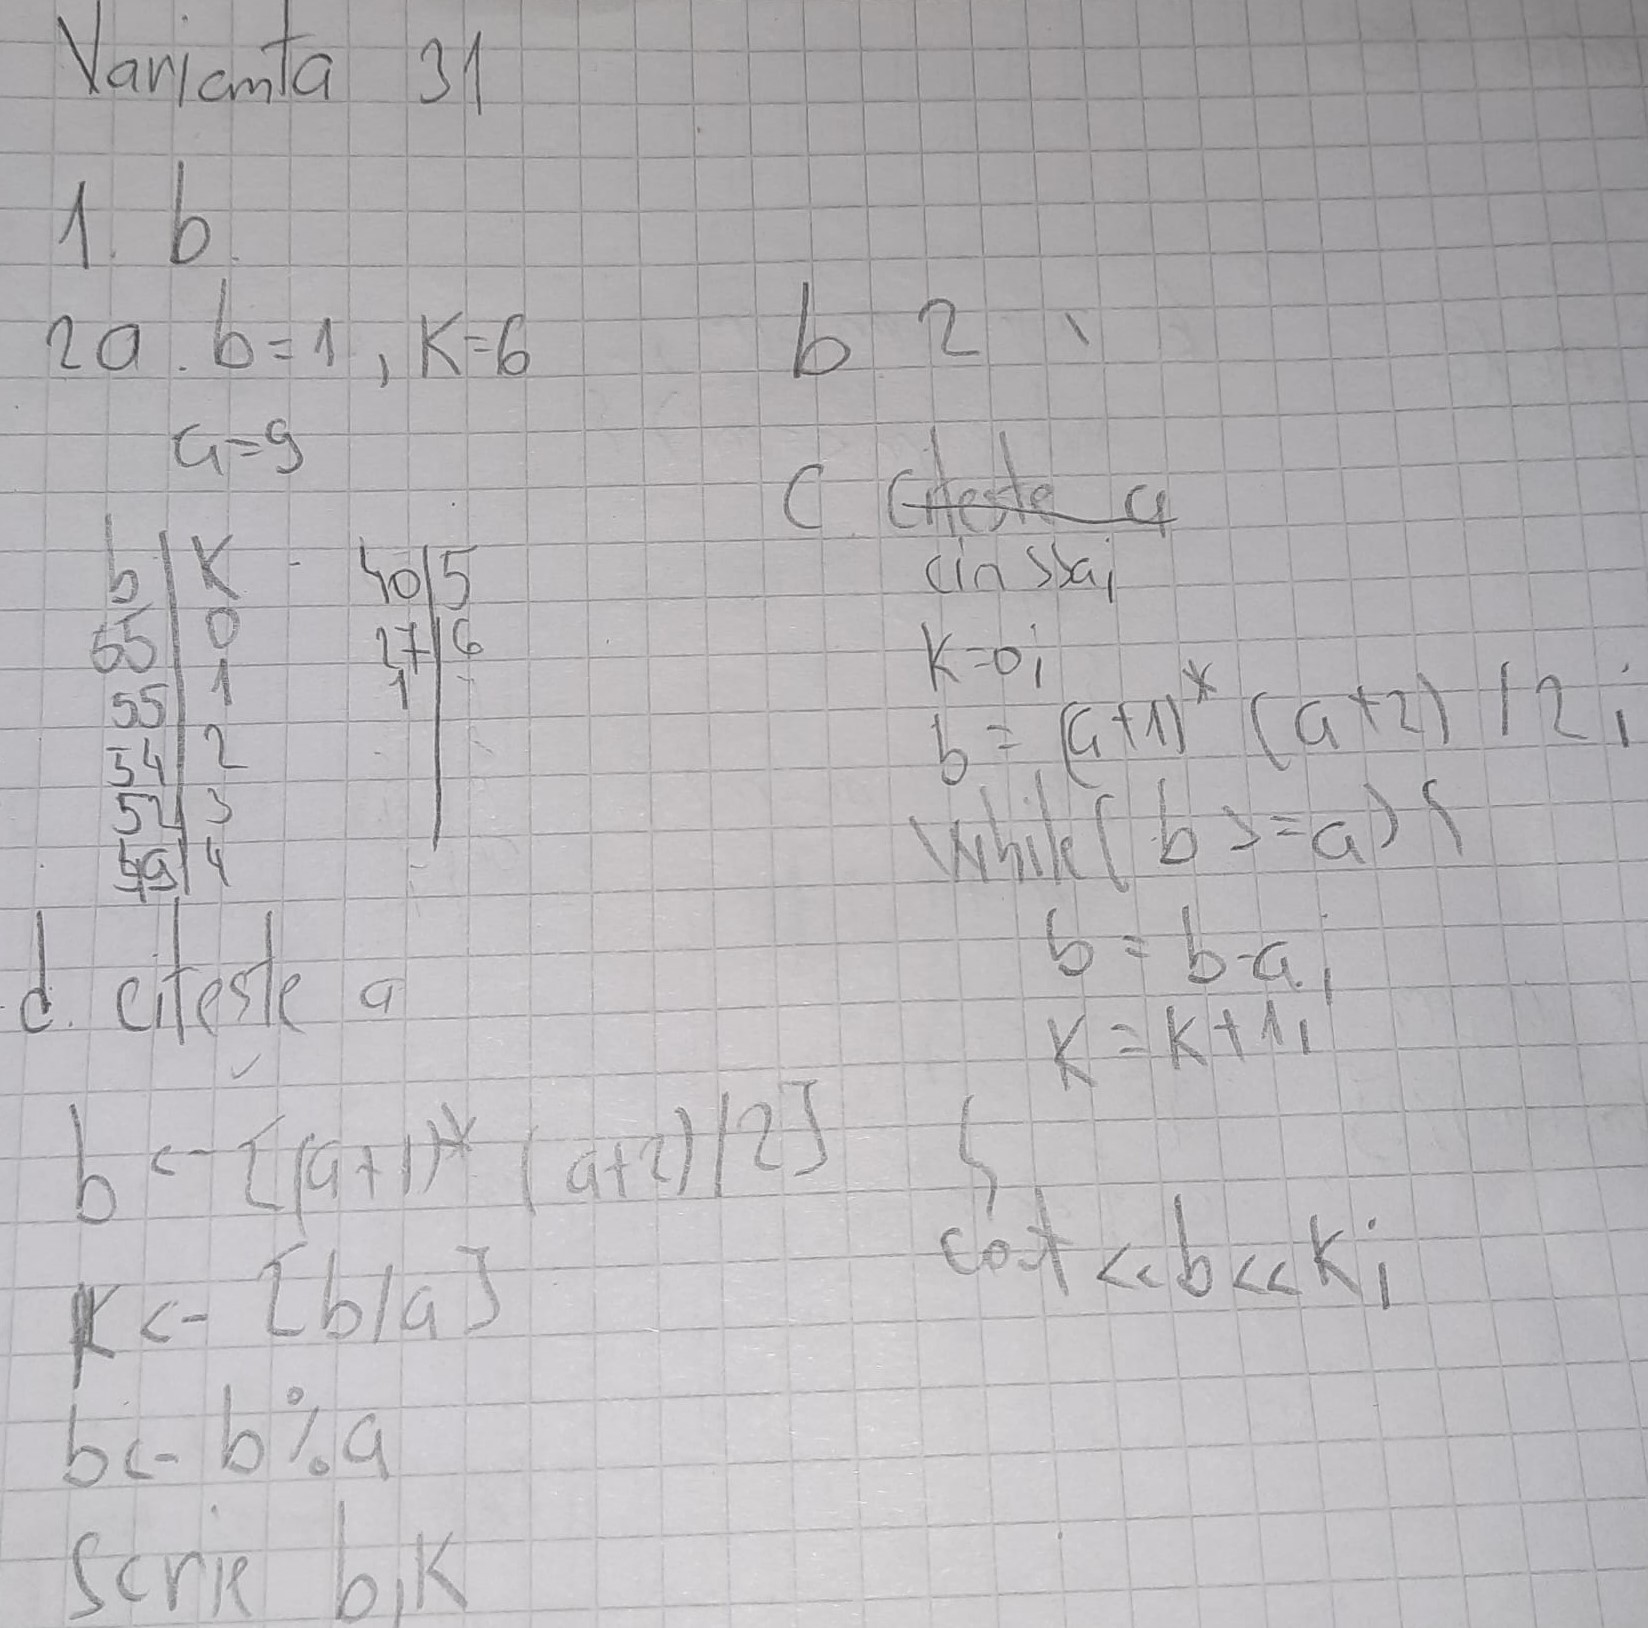 Varianta 31
1. b.
2a. b=1, K=6
a=9
b | K
55 | 0
55 | 1
54 | 2
52 | 3
49 | 4
40 | 5
27 | 6
1
b 2
C Citeste a
cin>>a;
K=0;
b = (a+1)* (a+2) /2;
While( b >=a) {
b = b-a;
K = K+1;
}
cout <<b<<K;
d. citeste a
b <- [(a+1)* (a+2)/2]
K <- [b/a]
b <- b%a
Scrie b,K